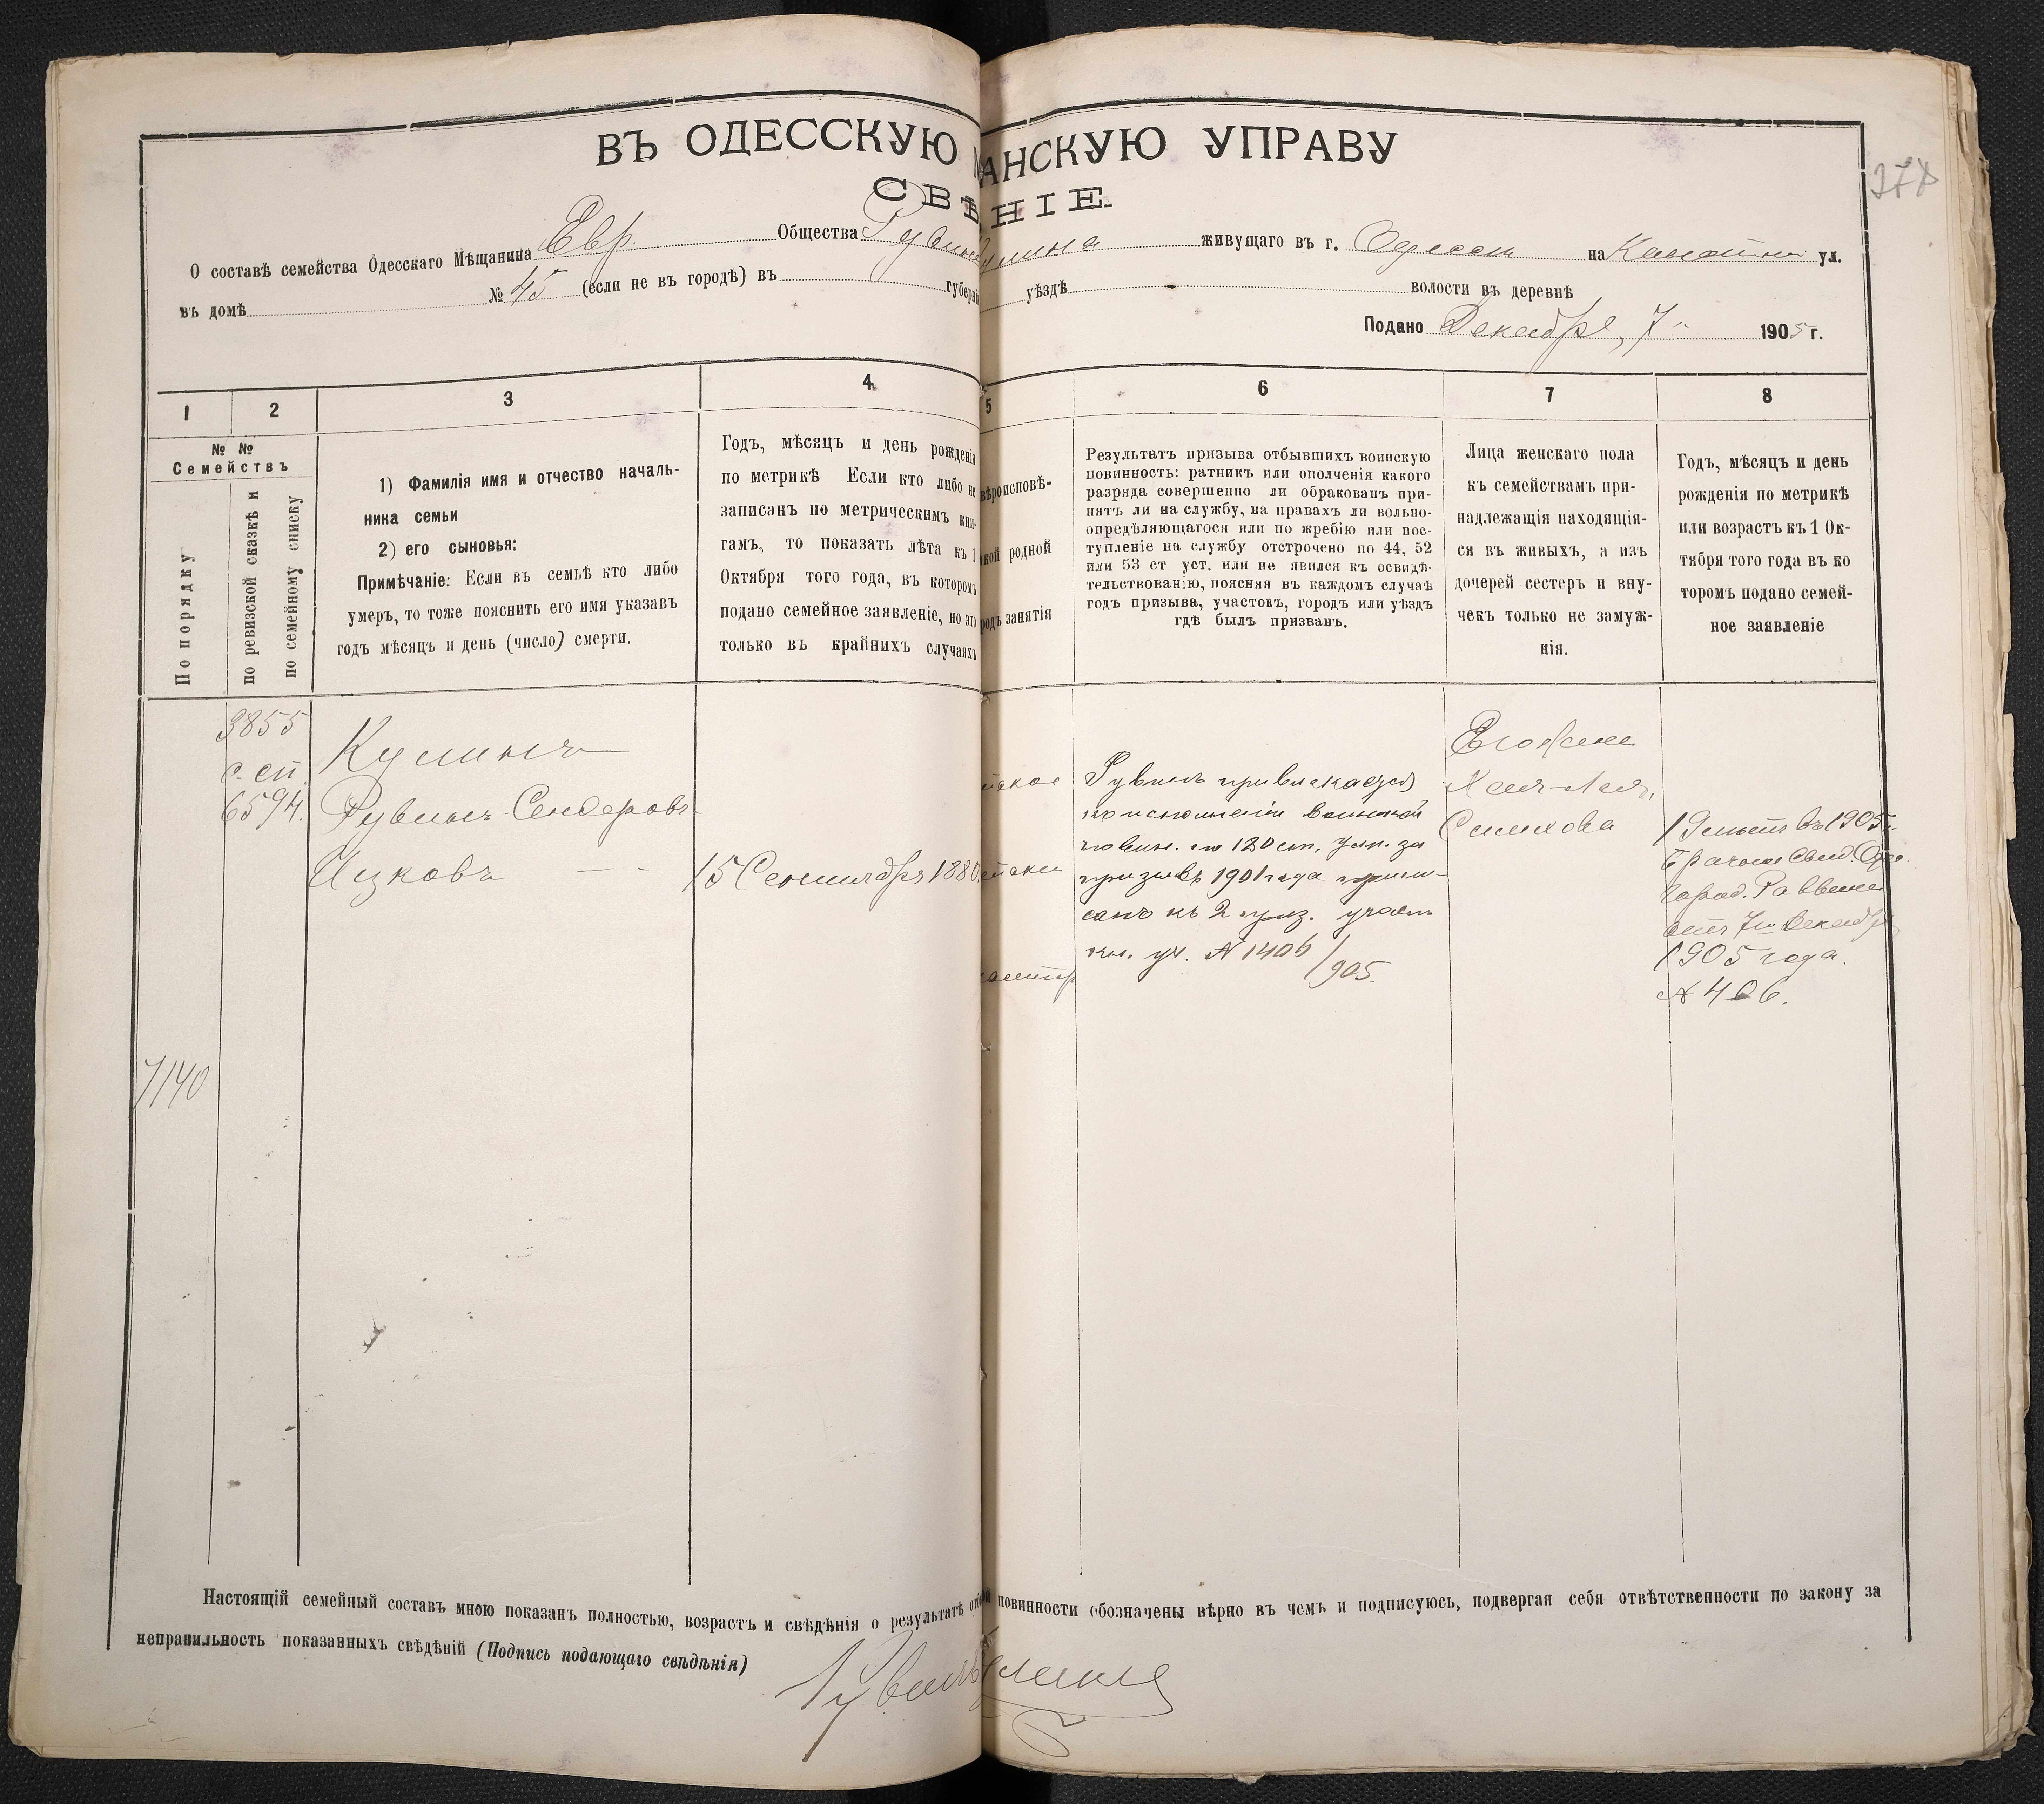 ВЪ ОДЕССКУЮ АНСКУЮ УПРАВУ
СВѢ НІЕ.
378
О составѣ семейства Одесскаго Мѣщанина Евр. Общества Рувин Кулина живущаго въ г. Одессы на Канатной ул.
въ домѣ № 45 (если не въ городѣ) въ губерн уѣздѣ волости въ деревнѣ
Подано Декабря, 7 1905 г.
1 2 3 4 5 6 7 8
№ №
Семействъ
По порядку
по ревизской сказкѣ и
по семейному списку
1) Фамилія имя и отчество началь-
ника семьи
2) его сыновья:
Примѣчаніе: Если въ семьѣ кто либо
умеръ, то тоже пояснить его имя указавъ
годъ мѣсяцъ и день (число) смерти.
Годъ, мѣсяцъ и день рожденія
по метрикѣ Если кто либо не
записанъ по метрическимъ кни-
гамъ, то показать лѣта къ 1
Октября того года, въ которомъ
подано семейное заявленіе, но это
только въ крайнихъ случаяхъ
вѣроисповѣ-
кой родной
родъ занятія
Результатъ призыва отбывшихъ воинскую
повинность: ратникъ или ополченія какого
разряда совершенно ли обракованъ при-
нятъ ли на службу, на правахъ ли вольно-
опредѣляющагося или по жребію или пос-
тупленіе на службу отстрочено по 44, 52
или 53 ст уст. или не явился къ освидѣ-
тельствованію, поясняя въ каждомъ случаѣ
годъ призыва, участокъ, городъ или уѣздъ
гдѣ былъ призванъ.
Лица женскаго пола
къ семействамъ при-
надлежащія находящія-
ся въ живыхъ, а изъ
дочерей сестеръ и вну-
чекъ только не замуж-
нія.
Годъ, мѣсяцъ и день
рожденія по метрикѣ
или возрастъ къ 1 Ок-
тября того года въ ко
торомъ подано семей-
ное заявленіе
3855
с. сп.
6594.
7140
Кулинъ
Рувинъ Сендеровъ-
Ицковъ
15 Сентября 1880
йское
Рувинъ привлекается
по исполненіи воинской
повин. по 180 ст. Уст. за
призывъ 1901 года припи-
санъ къ 2 приз. участ.
кн. уч. № 1406/905.
Его жена
Хая-Лея,
19 лѣтъ въ 1905 г.
Брачное Свид. Одес.
Город. Раввина
отъ 7 Декабр
1905 года.
№ 406.
Настоящій семейный составъ мною показанъ полностью, возрастъ и свѣдѣнія о результатѣ от повинности обозначены вѣрно въ чемъ и подписуюсь, подвергая себя отвѣтственности по закону за
неправильность показанныхъ свѣдѣній (Подпись подающаго свѣдѣнія)
Рувинъ Кулинъ